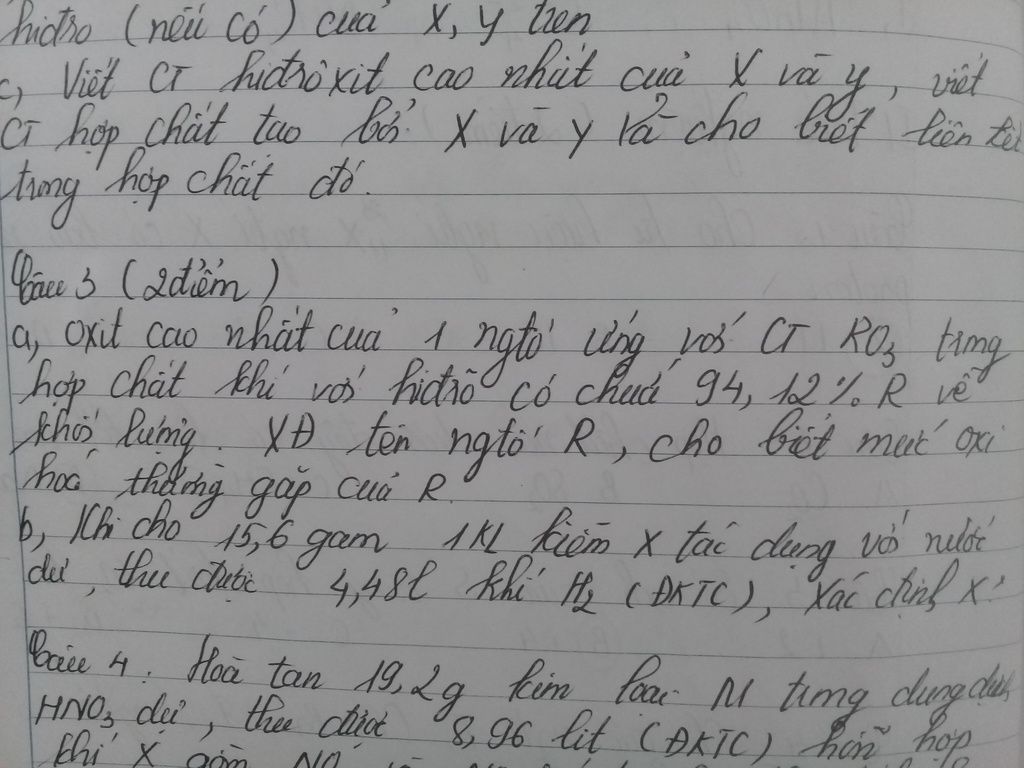 hiđrô (nếu có) của X, Y trên
c, Viết CT hiđrôxit cao nhất của X và Y, viết
CT hợp chất tạo bởi X và Y và cho biết liên kết
trong hợp chất đó.
Câu 3 (2 điểm)
a, Oxit cao nhất của 1 ngtố ứng với CT RO₃ trong
hợp chất khí với hiđrô có chứa 94,12% R về
khối lượng. XĐ tên ngtố R, cho biết mức oxi
hoá thường gặp của R.
b, Khi cho 15,6 gam 1 KL kiềm X tác dụng với nước
dư, thu được 4,48l khí H₂ (ĐKTC), Xác định X?
Câu 4. Hoà tan 19,2g kim loại M trong dung dịch
HNO₃ dư, thu được 8,96 lit (ĐKTC) hỗn hợp
khí X gồm NO₂